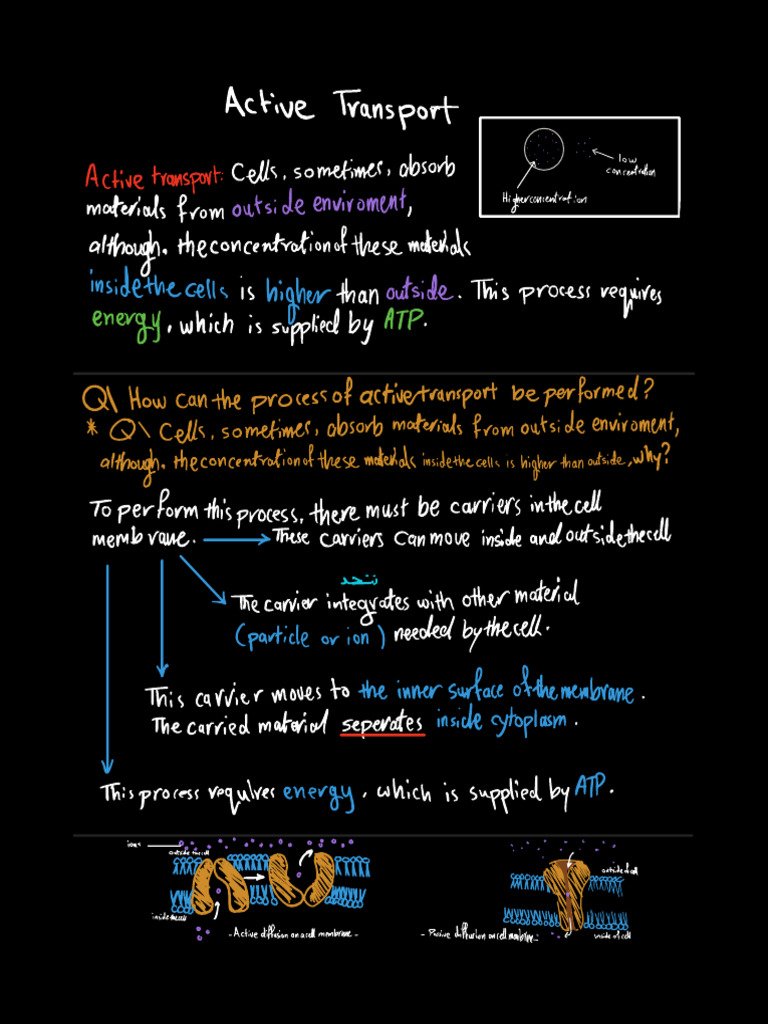 Active Transport
Active transport: Cells, sometimes, absorb
materials from outside enviroment,
although, the concentration of these materials
inside the cells is higher than outside. This process requires
energy, which is supplied by ATP.
low
concentration
Higher concentration
Q\ How can the process of active transport be performed?
* Q\ Cells, sometimes, absorb materials from outside enviroment,
although, the concentration of these materials inside the cells is higher than outside, why?
To perform this process, there must be carriers in the cell
membrane. These carriers can move inside and outside the cell
تتحد
The carrier integrates with other material
(particle or ion) needed by the cell.
This carrier moves to the inner surface of the membrane.
The carried material seperates inside cytoplasm.
This process requires energy, which is supplied by ATP.
ions
outside the cell
inside the cell
- Active diffusion on a cell membrane -
outside of cell
inside of cell
- Passive diffusion on cell membrane -